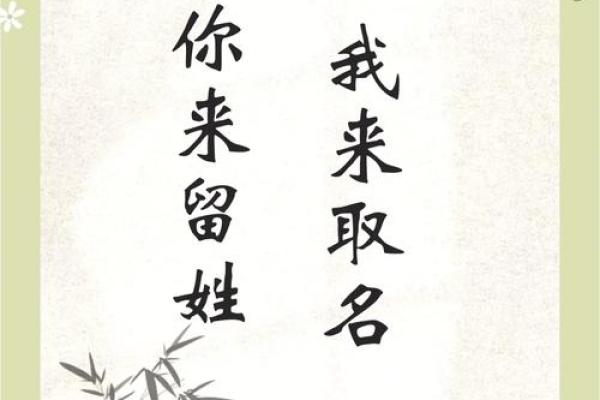 你来留姓
我来取名